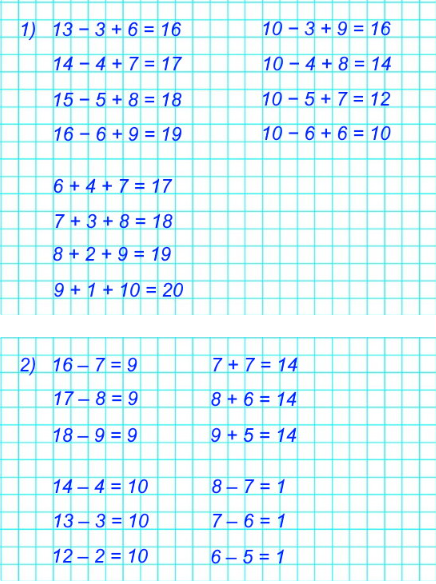 1) 13 − 3 + 6 = 16 10 − 3 + 9 = 16
14 − 4 + 7 = 17 10 − 4 + 8 = 14
15 − 5 + 8 = 18 10 − 5 + 7 = 12
16 − 6 + 9 = 19 10 − 6 + 6 = 10
6 + 4 + 7 = 17
7 + 3 + 8 = 18
8 + 2 + 9 = 19
9 + 1 + 10 = 20
2) 16 – 7 = 9 7 + 7 = 14
17 – 8 = 9 8 + 6 = 14
18 – 9 = 9 9 + 5 = 14
14 – 4 = 10 8 – 7 = 1
13 – 3 = 10 7 – 6 = 1
12 – 2 = 10 6 – 5 = 1